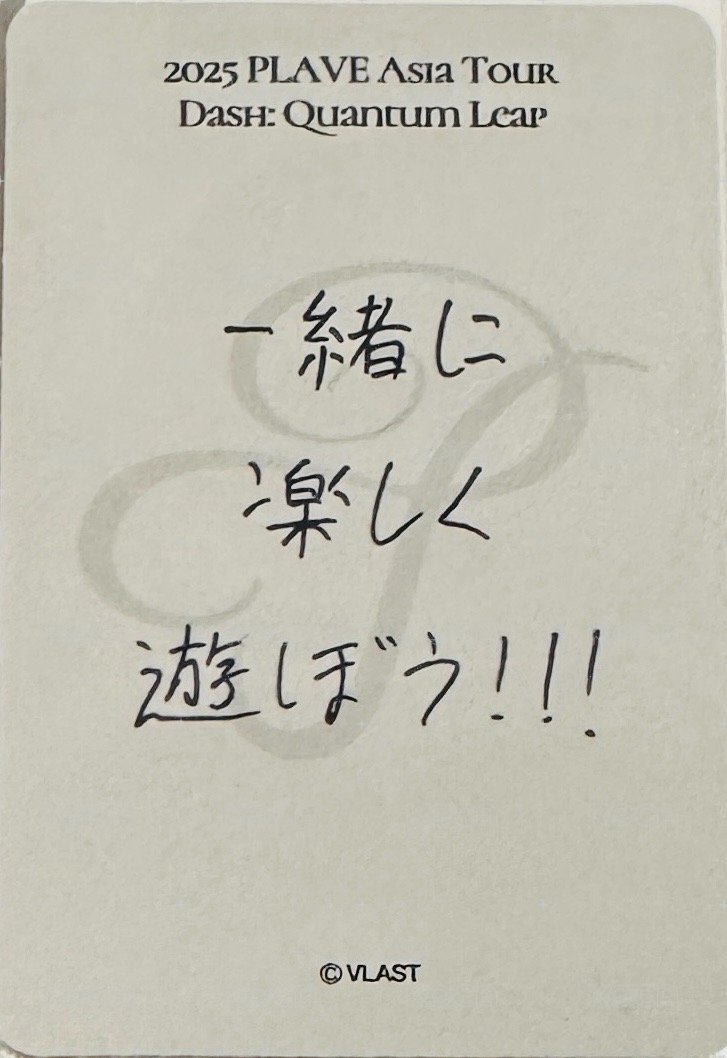 2025 PLAVE Asia Tour
Dash: Quantum Leap
一緒に
楽しく
遊ぼう!!!
© VLAST